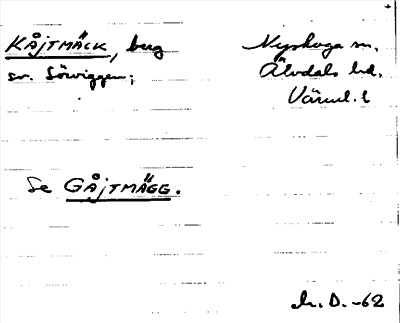 KÅJTMÄCK, berg
sv. Lörviggen;
Nyskoga sn,
Älvdals hd,
Värml. l
Se GÅJTMÄGG.
D. -62